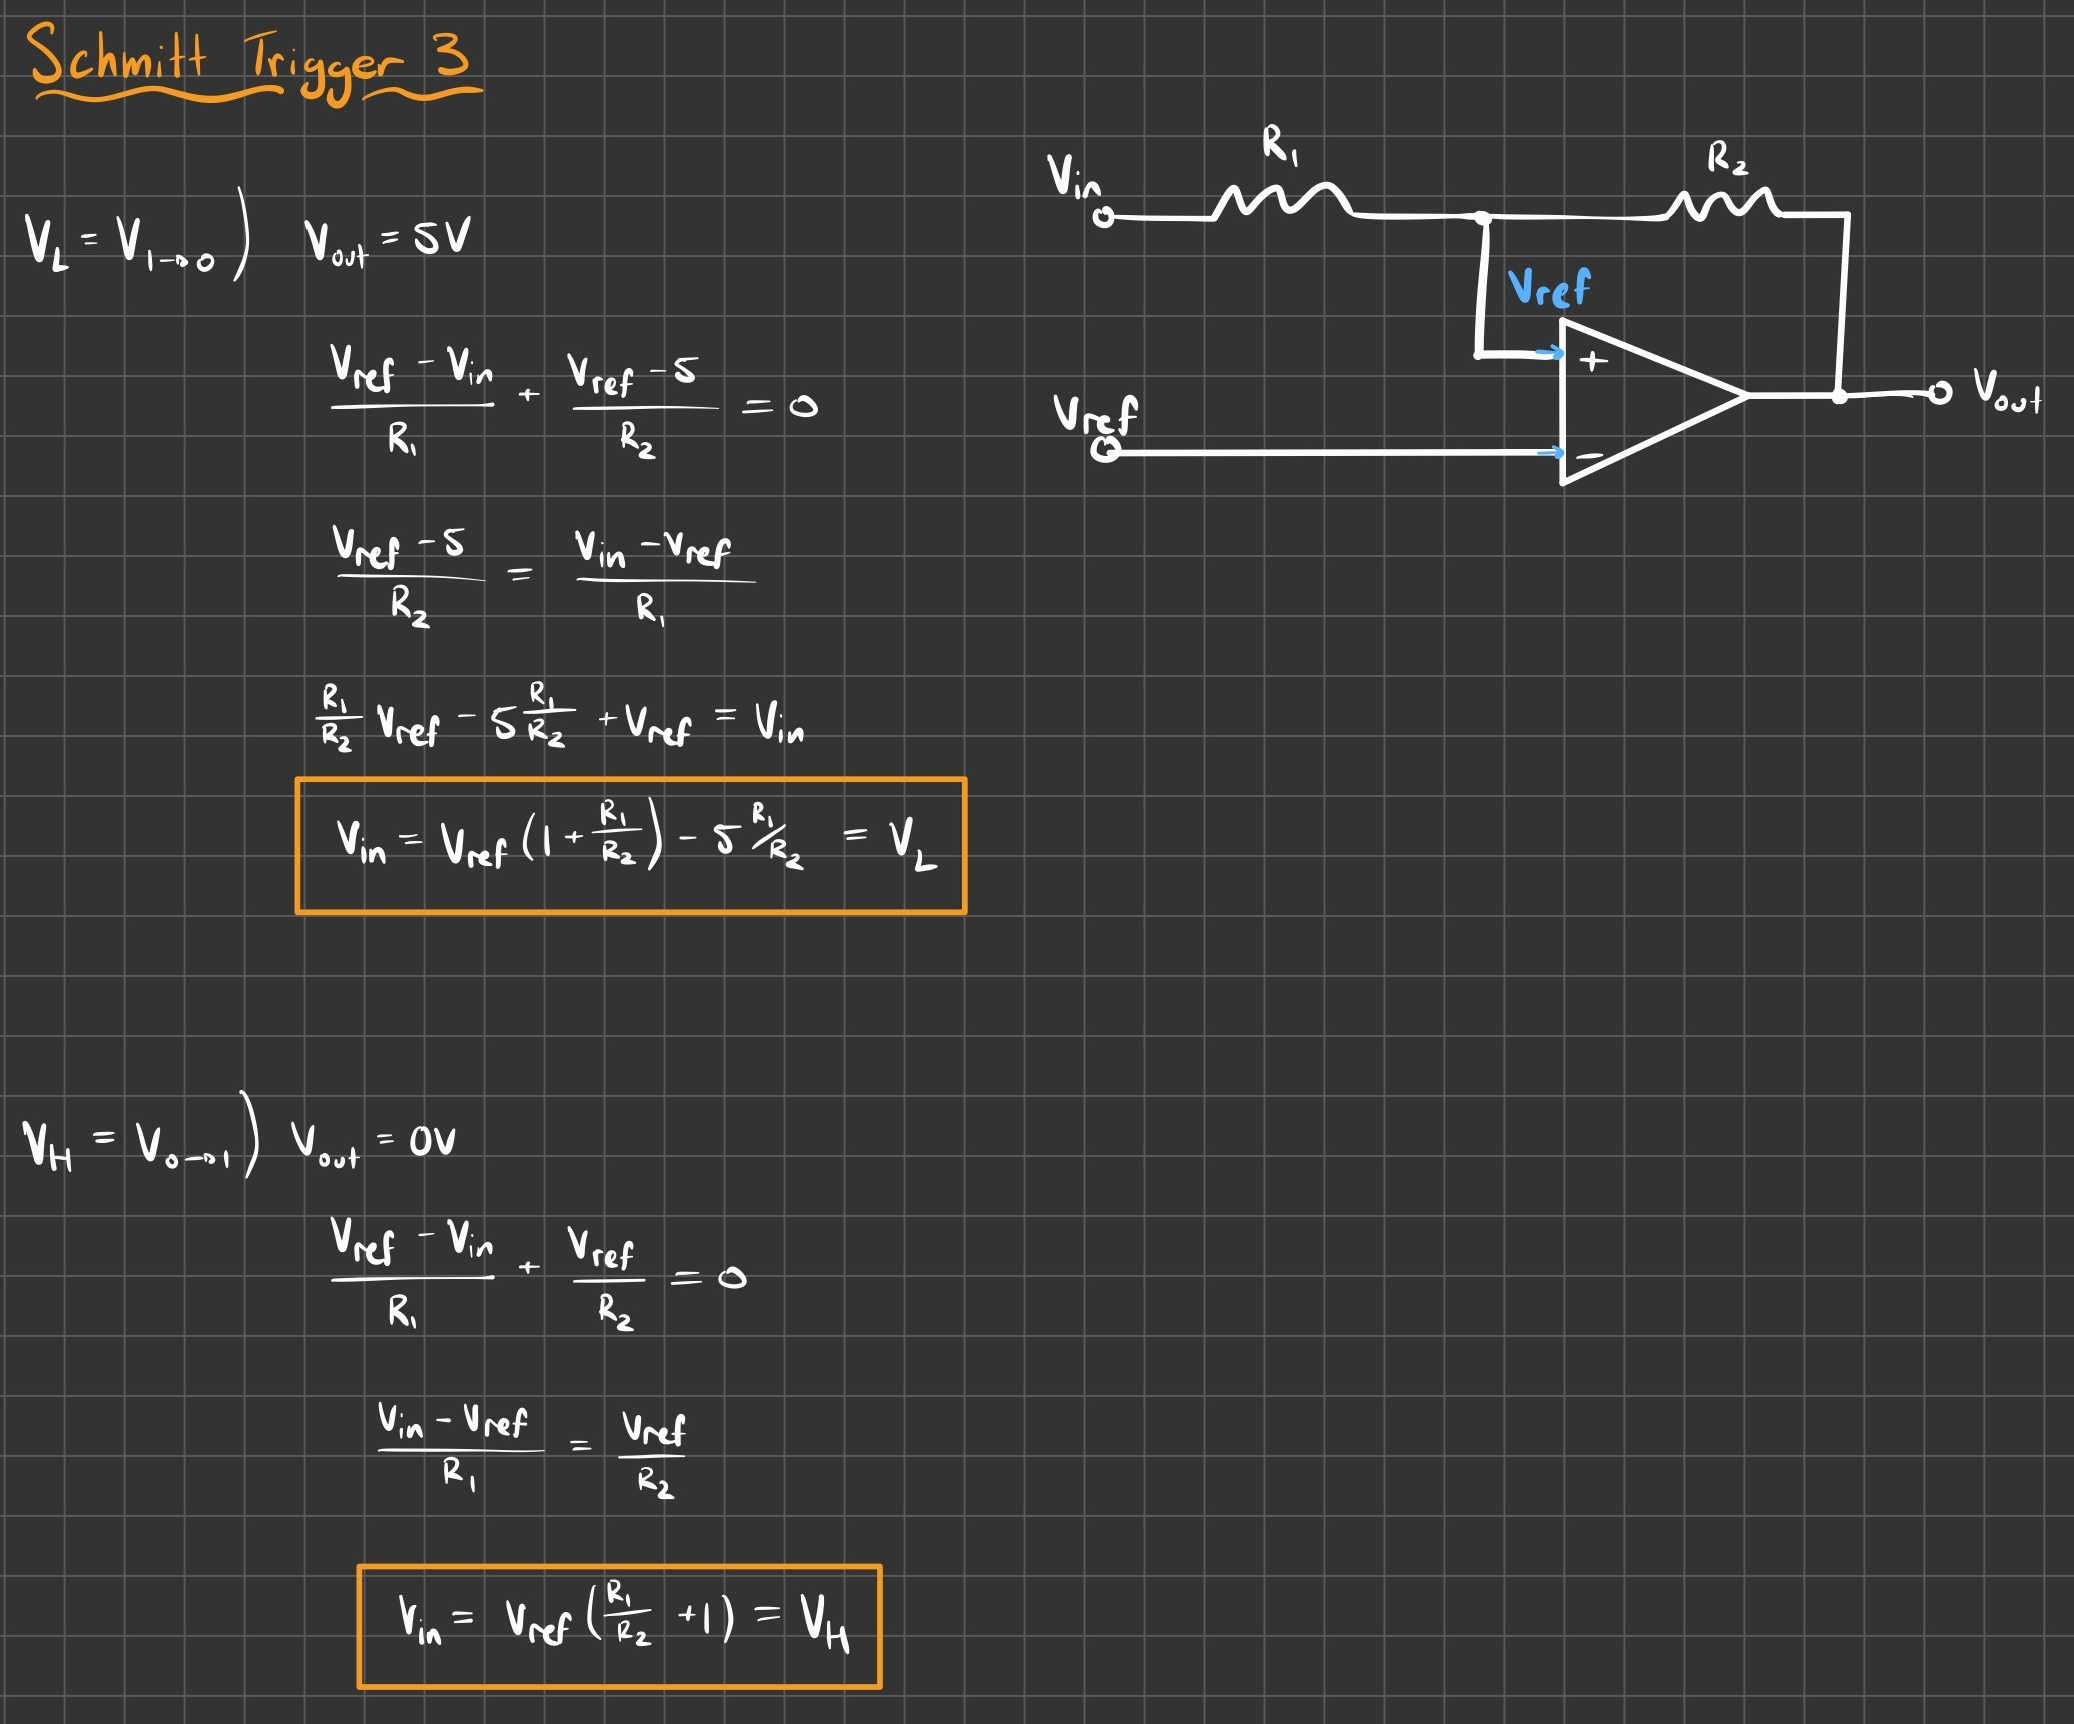 Schmitt Trigger 3
V_L = V_{1→0} ) V_out = 5V
(V_ref - V_in)/R_1 + (V_ref - 5)/R_2 = 0
(V_ref - 5)/R_2 = (V_in - V_ref)/R_1
R_1/R_2 V_ref - 5 R_1/R_2 + V_ref = V_in
V_in = V_ref (1 + R_1/R_2) - 5 R_1/R_2 = V_L
V_H = V_{0→1} ) V_out = 0V
(V_ref - V_in)/R_1 + V_ref/R_2 = 0
(V_in - V_ref)/R_1 = V_ref/R_2
V_in = V_ref (R_1/R_2 + 1) = V_H
V_in
R_1
R_2
V_ref
V_ref
+
-
V_out